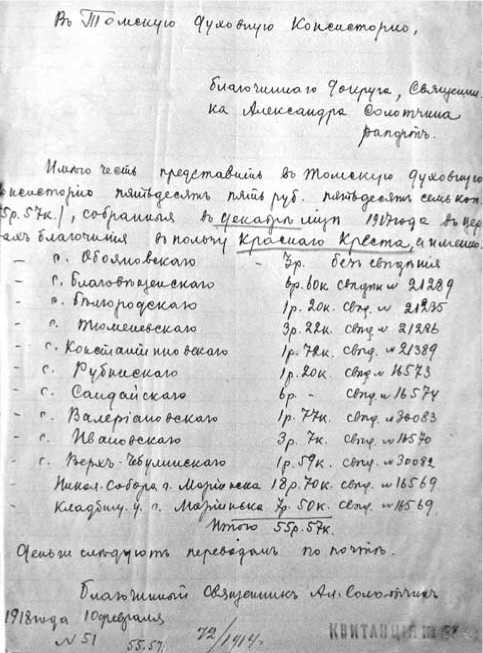 Въ Томскую Духовную Консисторiю,
благочиннаго округа, Священни-
ка Александра Солотчина
рапортъ.
Имѣю честь представить въ Томскую Духовную
Консисторiю пятьдесятъ пять руб. пятьдесятъ семь коп.
55р. 57к./, собранныя въ декабрѣ мцѣ 1917 года въ цер-
вахъ благочинiя въ пользу Краснаго Креста, а именно:
– с. Обояновскаго – 7р. безъ свѣдѣнiя
– с. Благовѣщенскаго 6р. 60к. свѣдѣн. № 21289
– с. Бѣлгородскаго 1р. 20к. свѣд. № 21235
– с. Тюменевскаго 3р. 22к. свѣд. № 21286
– с. Константиновскаго 1р. 72к. свѣд. № 21389
– с. Рубинскаго 1р. 20к. свѣд. № 16573
– с. Сандайскаго 6р. – свѣд. № 16574
– с. Валерiановскаго 1р. 77к. свѣд. № 30083
– с. Ивановскаго 3р. 7к. свѣд. № 16570
– с. Верхъ-Чебулинскаго 1р. 59к. свѣд. № 30082
– Никол. Собора г. Марiинска 18р. 70к. свѣд. № 16569
– Кладбищ. ц. г. Марiинска 7р. 50к. свѣд. № 16569
Итого 55р. 57к.
Деньги слѣдуютъ переводомъ по почтѣ.
Благочинный Священникъ Ал. Солотчинъ
1918 года 10 февраля
№ 51 55.57 72/1914г. КВИТАНЦIЯ №